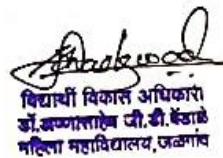 विद्यार्थी विकास अधिकारी
डॉ.अण्णासाहेब जी.डी.बेंडाळे
महिला महाविद्यालय, जळगांव